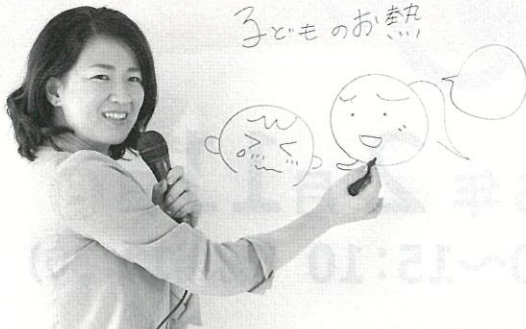 子どものお熱